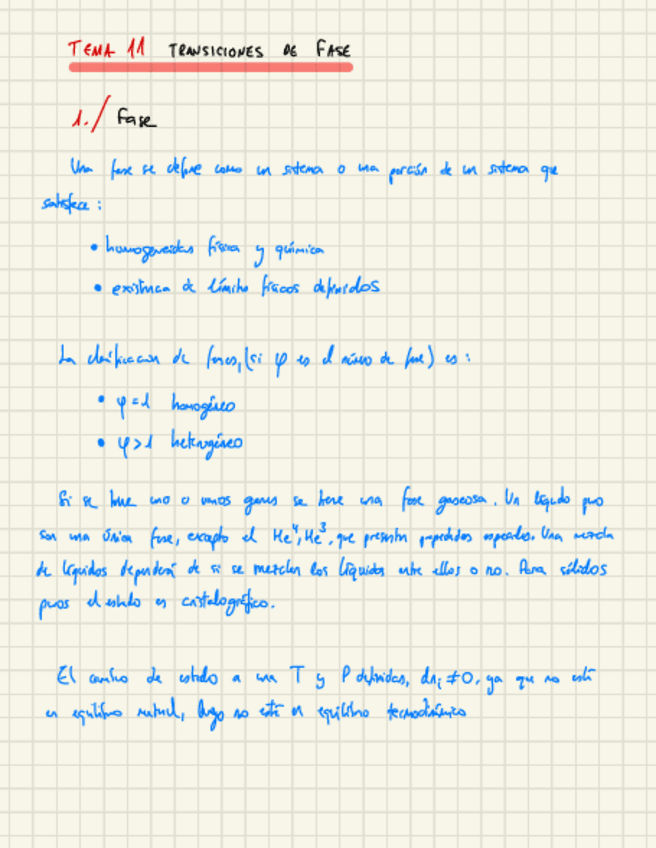 TEMA 11 TRANSICIONES DE FASE
1./ Fase
Una fase se define como un sistema o una porción de un sistema que
satisface:
• homogeneidad física y química
• existencia de límites físicos definidos
La clasificación de fases, (si φ es el número de fase) es:
• φ=1 homogéneo
• φ>1 heterogéneo
Si se tiene uno o varios gases se tiene una fase gaseosa. Un líquido puro
son una única fase, excepto el He⁴, He³, que presentan propiedades especiales. Una mezcla
de líquidos dependerá de si se mezclan los líquidos entre ellos o no. Para sólidos
puros el estado es cristalográfico.
El cambio de estado a una T y P definidas, dnᵢ ≠ 0, ya que no está
en equilibrio material, luego no está en equilibrio termodinámico